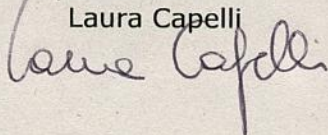 Laura Capelli
Laura Capelli